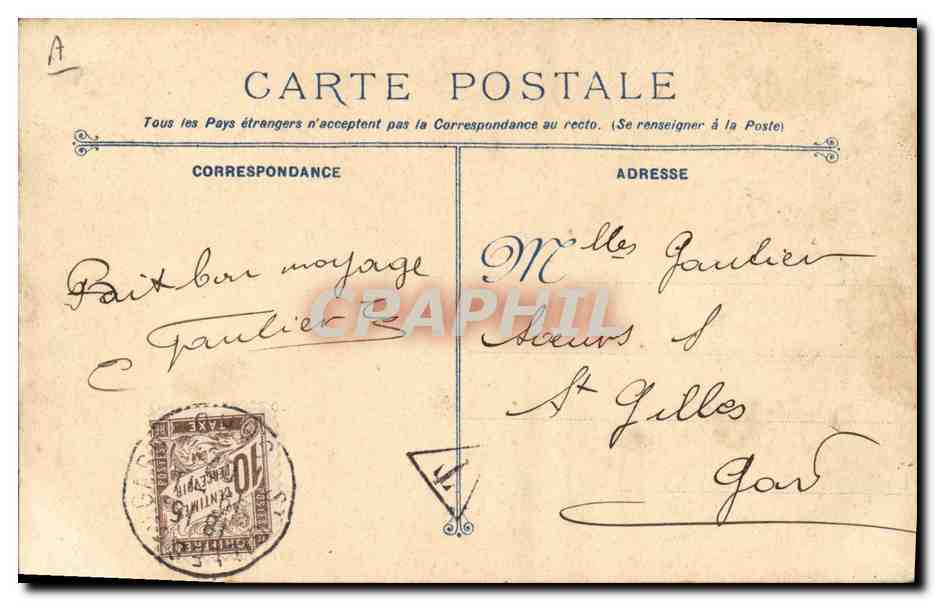 A
CARTE POSTALE
Tous les Pays étrangers n'acceptent pas la Correspondance au recto. (Se renseigner à la Poste)
CORRESPONDANCE
ADRESSE
Fait bon moyage
Gautier
Mlles Gautier
Soeurs
St Gilles
Gard
CPAPHIL
T
TAXE
10
CENTIMES
A PERCEVOIR